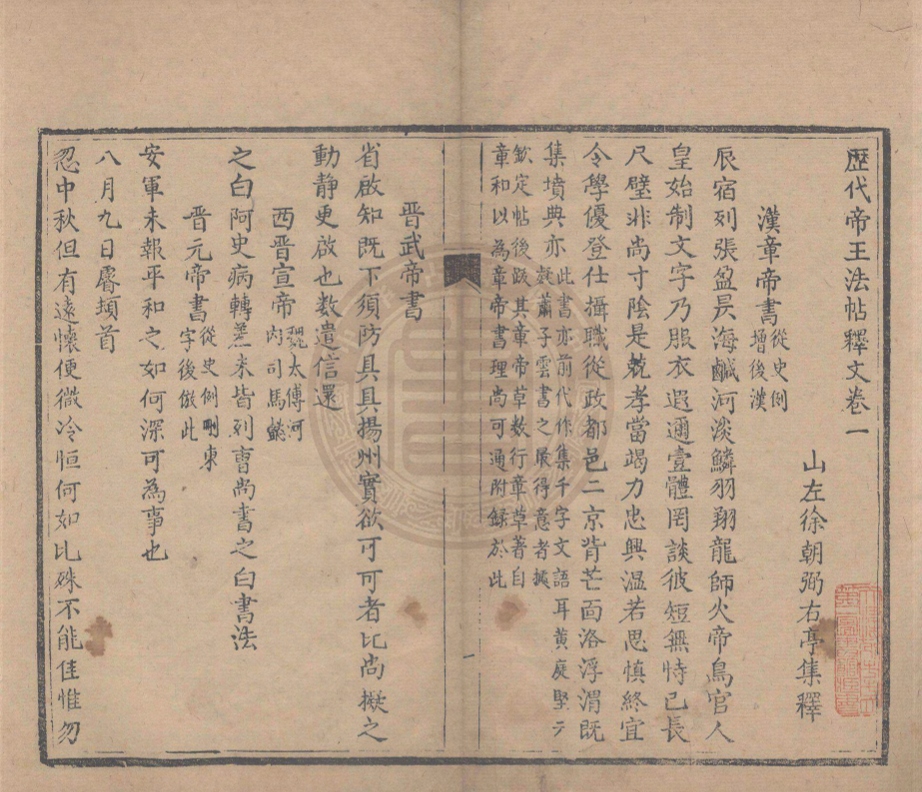 歷代帝王法帖釋文卷二
山左徐朝弼右亭集釋
漢章帝書
從史例
增後漢
辰宿列張盈昃海鹹河淡鱗羽翔龍師火帝鳥官人
皇始制文字乃服衣遐邇壹體罔談彼短無恃已長
尺璧非尚寸陰是兢孝當竭力忠興溫若思慎終宜
令學優登仕攝職從政都邑二京背芒面洛浮渭既
集墳典亦
此書亦前代作集千字文語耳黄庭堅云
疑蕭子雲書之最得意者據
欽定帖後跋其章帝草數行章草著自
章和以為章帝書理尚可通附録於此
晋武帝書
省啟知既下須防具具揚州實欲可可者比尚擬之
動靜更啟也数遣信還
西晋宣帝
魏太傅河
内司馬懿
之白阿史病轉差未皆列曺尚書之白書法
晋元帝書
從史例刪東
字後倣此
安軍未報平和之如何深可為事也
八月九日㬱頓首
忽中秋但有遠懷便微冷恒何如比殊不能佳惟勿
一